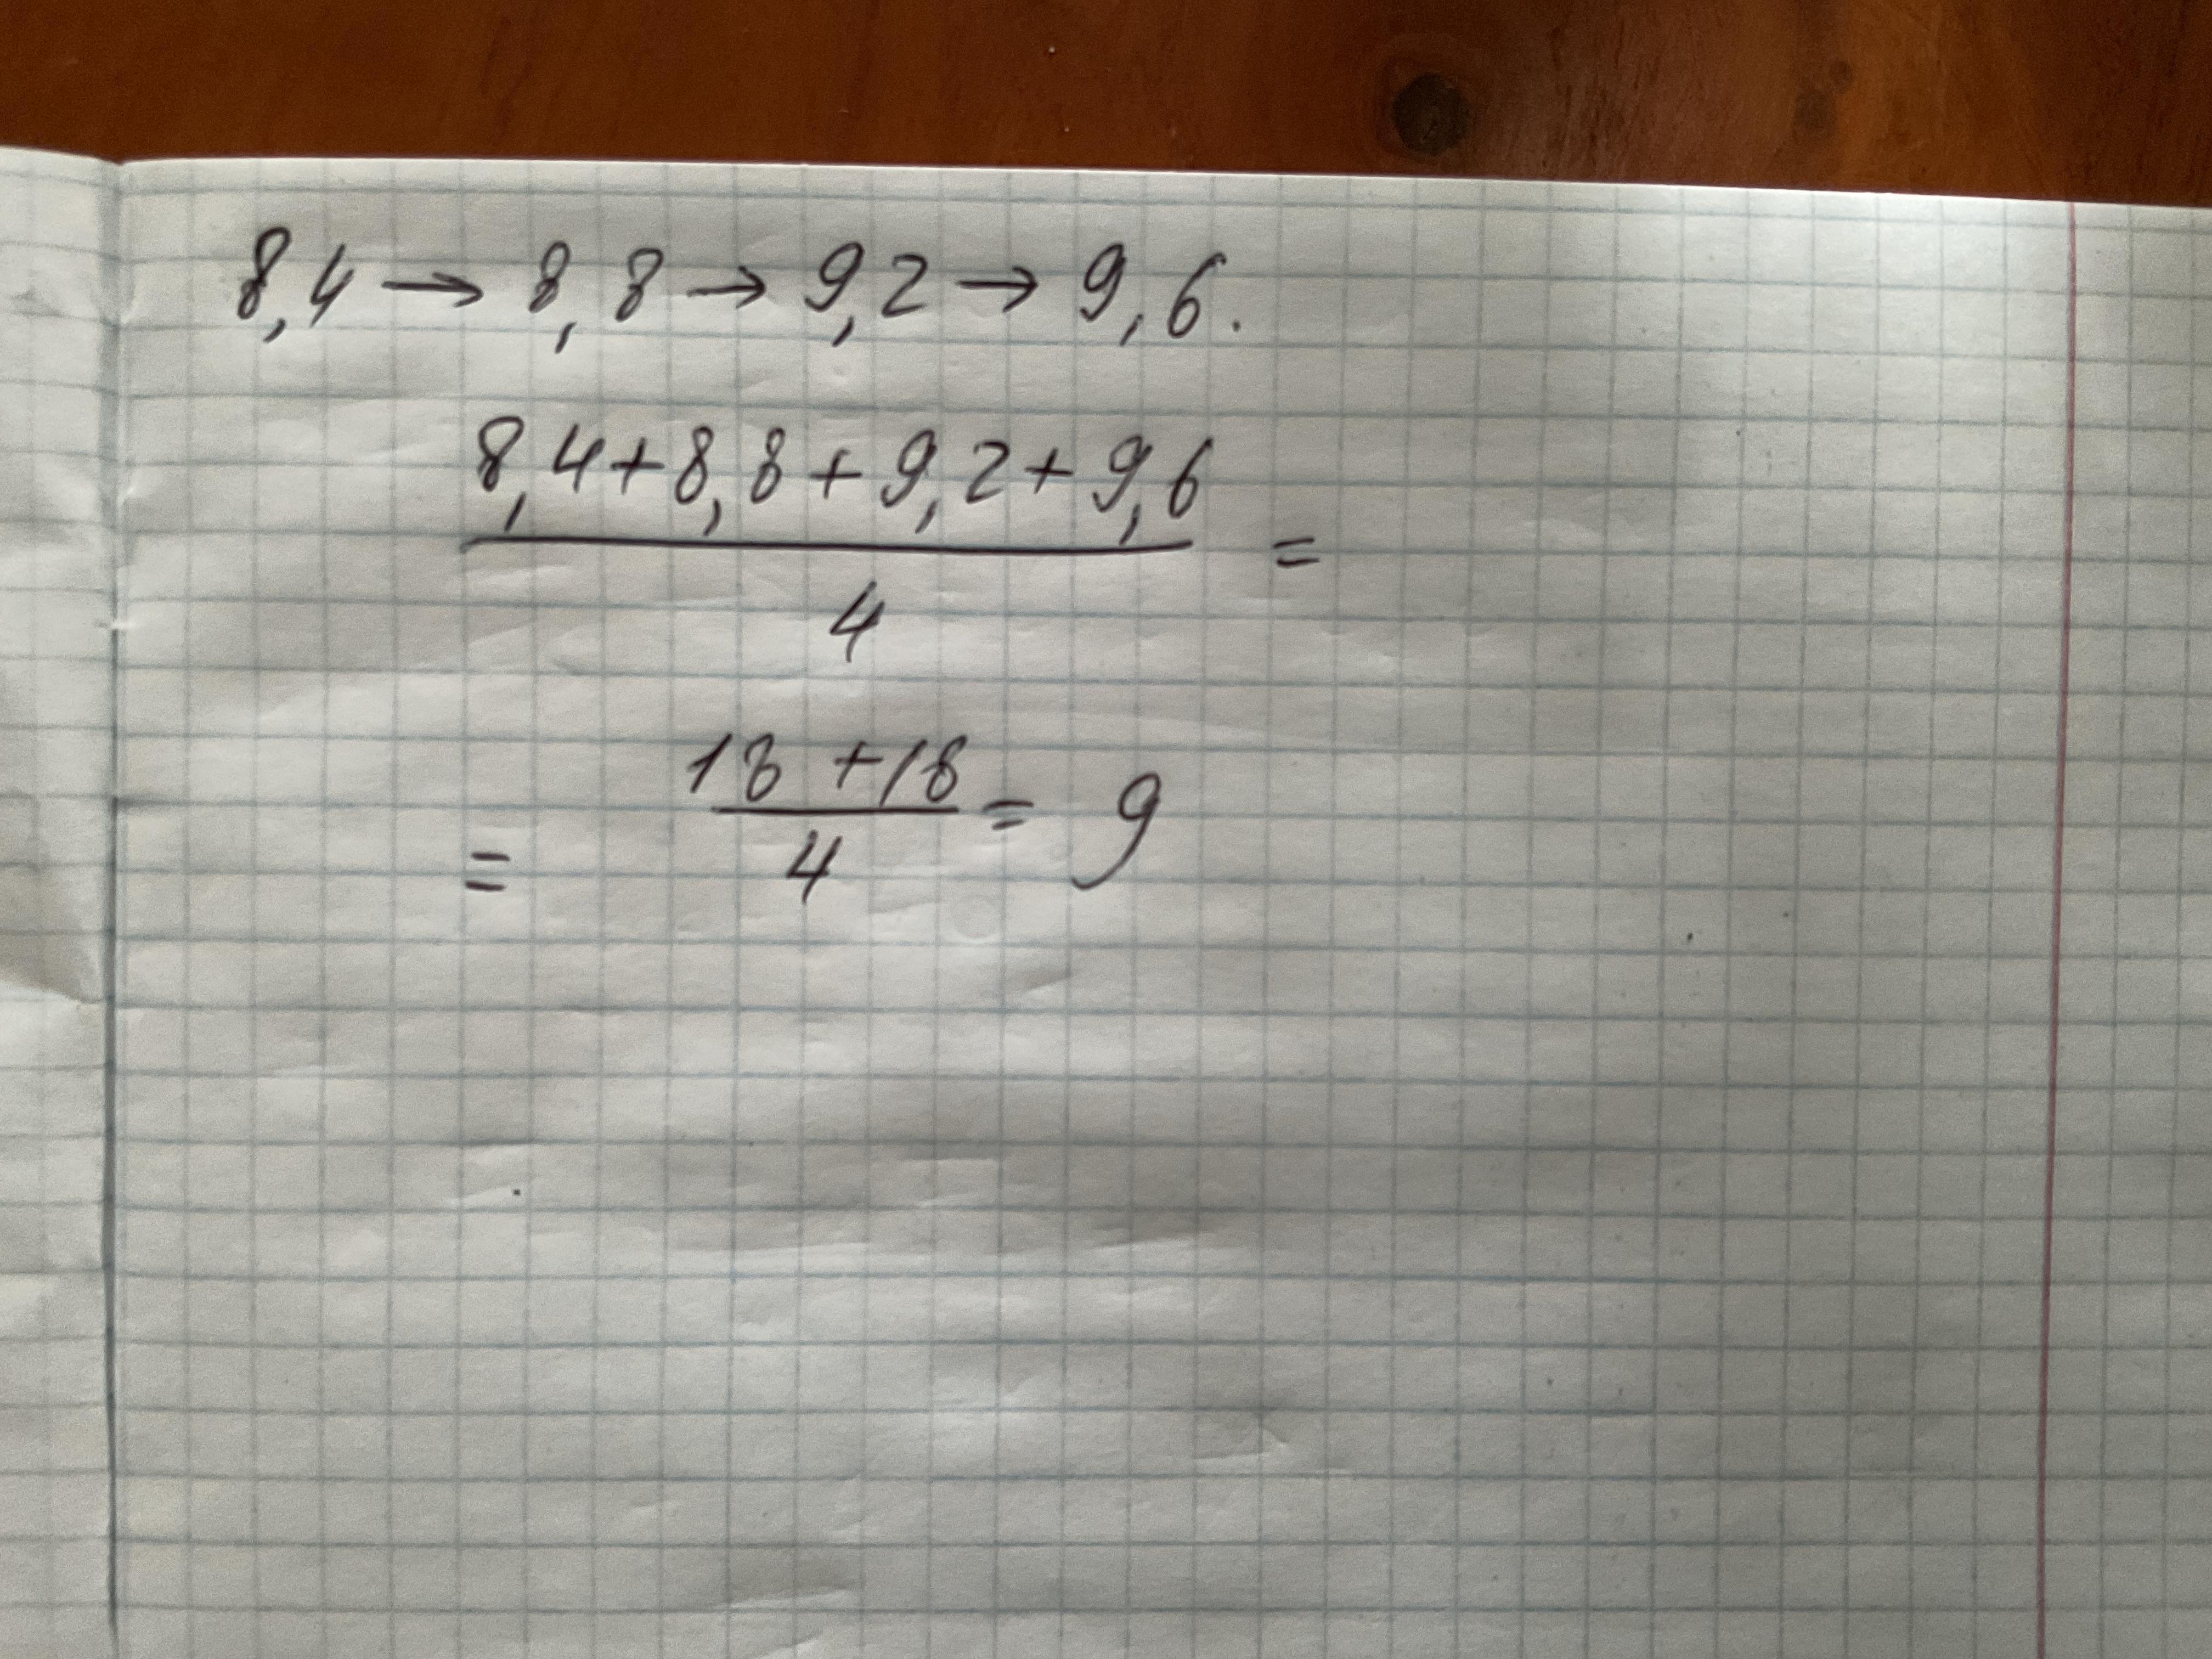 8,4 → 8,8 → 9,2 → 9,6.
8,4+8,8+9,2+9,6
=
4
18 +18
= 9
=
4